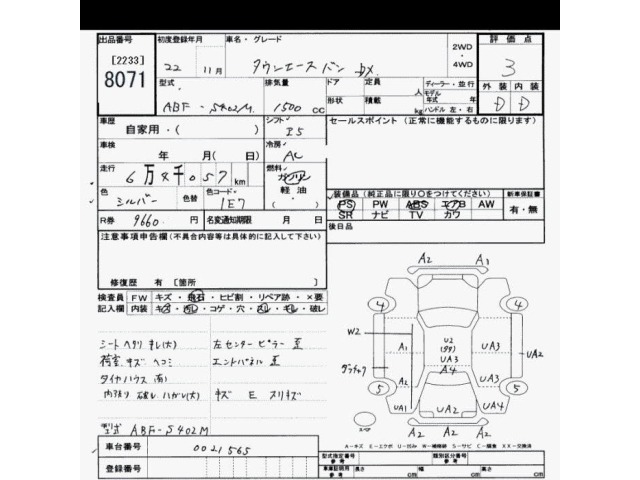 出品番号 初度登録年月 車名・グレード 評価点
[2233]
8071
22 11月 タウンエースバン DX 2WD・4WD 3
型式 排気量 ドア 定員 人 ディーラー・並行 外装 内装
ABF-S402M 1500 CC 形状 積載 kg モデル年式 年 ハンドル 左・右 D D
車歴 シフト セールスポイント (正常に機能するものに限ります)
自家用・( ) I5
車検 冷房
年 月(日) AC
走行 燃料
6万 千057km ガソリン
軽油
・( )
色 色替 色コード 装備品 (純正品に限り○をつけてください) 新車保証書
シルバー 1E7 PS PW ABS エアB AW 有・無
SR ナビ TV カワ
R券 9660 円 名変通知期限 月 日 後日品
注意事項申告欄 (不具合内容等は具体的に記入して下さい)
修復歴 有 [箇所 ]
検査員 FW キズ・飛石・ヒビ割・リペア跡・×要
記入欄 内装 キズ・汚レ・コゲ・穴・スレ・キレ・破レ
シートヘタリ キレ(大) 左センターピラー
荷室 キズ ヘコミ エンドパネル
タイヤハウス
内張り 破レ ハガレ(大) キズ E スリキズ
型式 ABF-S402M
車台番号 0021565
登録番号
A2 A1
4 4
W2 A1 U2 UA3 UA3 UA2
A4
5 A2 UA3 5
UA1 UA2 UA4
A2 A2
スペア
A-キズ E-エクボ U-凹み W-補修跡 S-サビ C-腐食 XX-交換済
型式指定番号 参考 類別区分番号 参考
車庫証明用 参考 長さ cm 幅 cm 高さ cm